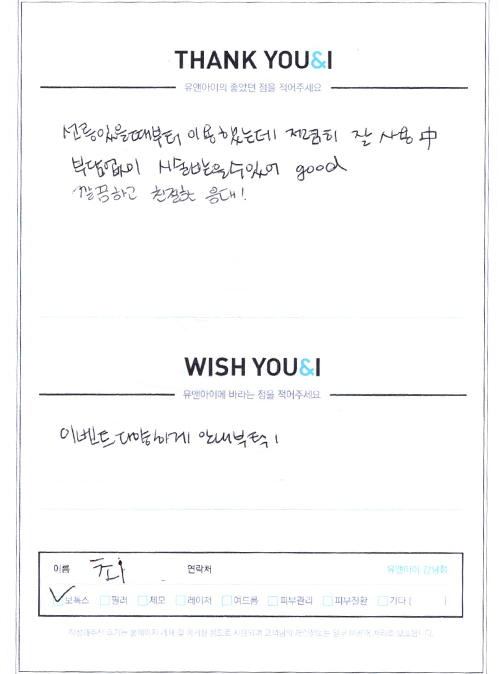 THANK YOU&I
유앤아이의 좋았던 점을 적어주세요
선릉있을때부터 이용했는데 저렴히 잘 사용中
부담없이 시술받을수있어 good
깔끔하고 친절한 응대!
WISH YOU&I
유앤아이에 바라는 점을 적어주세요
이벤트다양하게 안내부탁!
이름 최 연락처 유앤아이 강남점
보톡스 필러 제모 레이저 여드름 피부관리 피부질환 기타 ( )